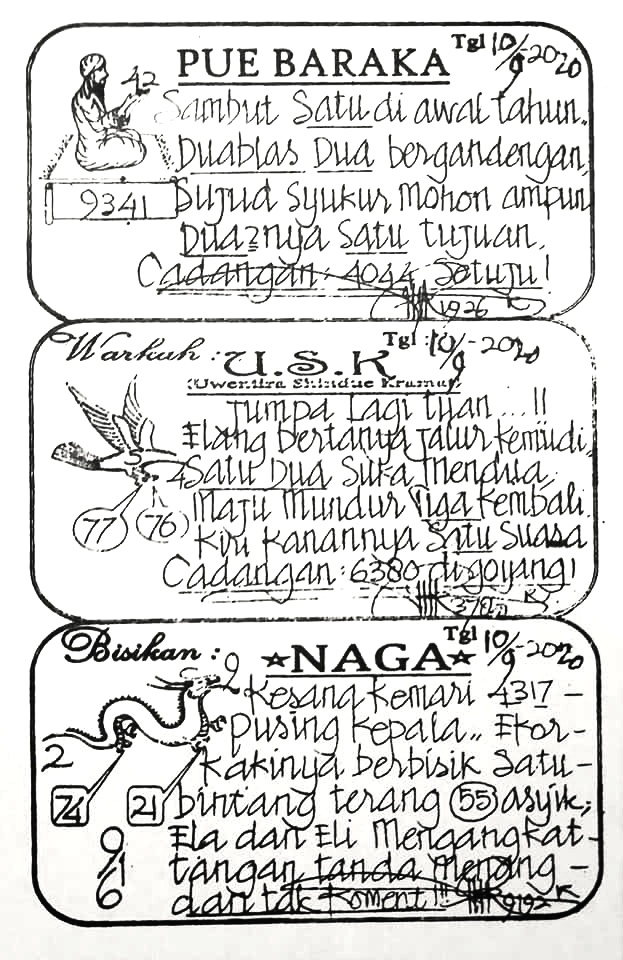 PUE BARAKA
Tgl 10/9-2020
42
Sambut Satu di awal tahun..
Duablas Dua bergandengan,
9341
Sujud Syukur Mohon ampun
Dua2nya Satu tujuan.
Cadangan : 4044 Setuju !
1926
Warkah :
U.S.K
Tgl : 10/9-2020
(Uwentira Shindue Kramat)
Jumpa Lagi tuan ... !!
Elang bertanya jalur kemudi,
5
4 Satu Dua Suka Mendua,
Maju Mundur Tiga kembali.
77 76
Kiri kanannya Satu Suasa
Cadangan : 6380 di goyang!
Bisikan :
NAGA
Tgl 10/9-2020
9
Kesana kemari 4317 -
pusing kepala.. Ekor -
2
kakinya berbisik Satu -
74 21
bintang terang 55 asyik,;
9/16
Ela dan Eli Mengangkat -
tangan tanda menang -
dan tak koment !!
9192